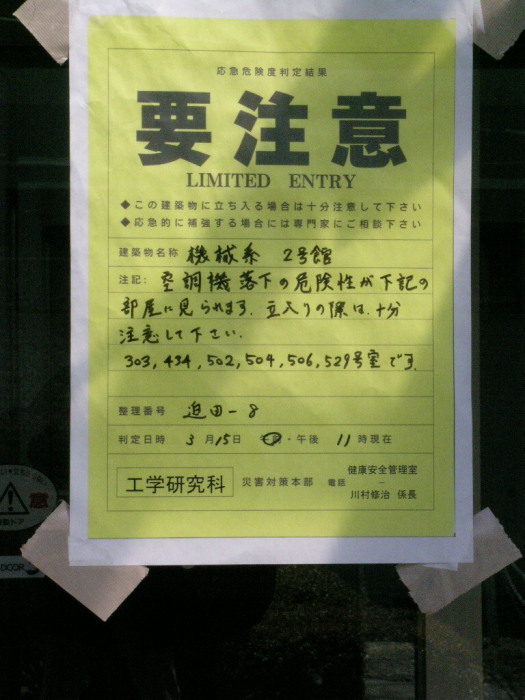 応急危険度判定結果
要注意
LIMITED ENTRY
◆この建築物に立ち入る場合は十分注意して下さい
◆応急的に補強する場合には専門家にご相談下さい
建築物名称 機械系 2号館
注記: 空調機落下の危険性が下記の
部屋に見られます. 立入りの係は、十分
注意して下さい.
303, 434, 502, 504, 506, 529号室です.
整理番号 迫田-8
判定日時 3月15日 午前・午後 11時現在
工学研究科 災害対策本部 電話 －
健康安全管理室
川村修治 係長
注意
自動ドア